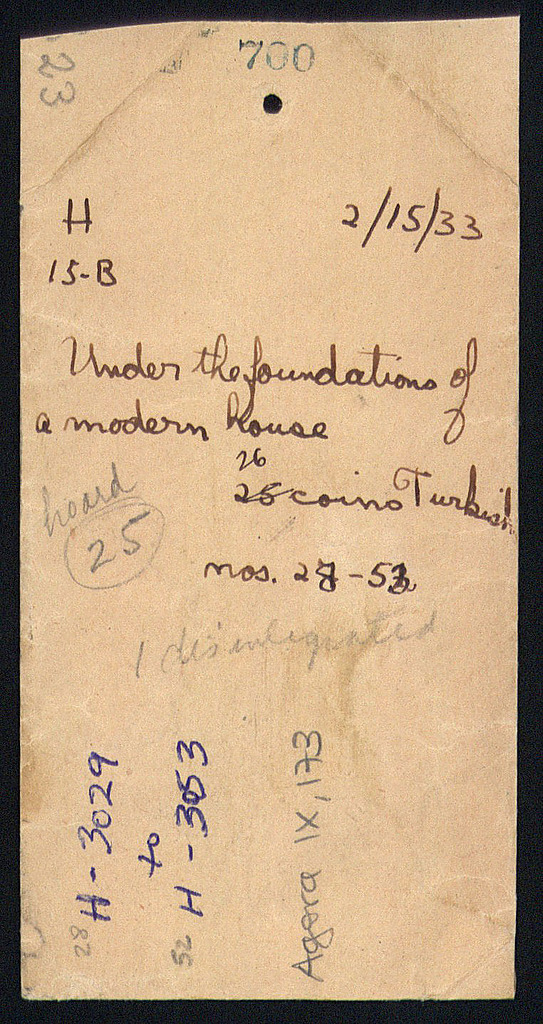 23
700
H
2/15/33
15-B
Under the foundations of
a modern house
26
26 coins Turkish
hoard
25
nos. 28-53
1 disintegrated
28 H-3029
to
52 H-3053
Agora IX, 173